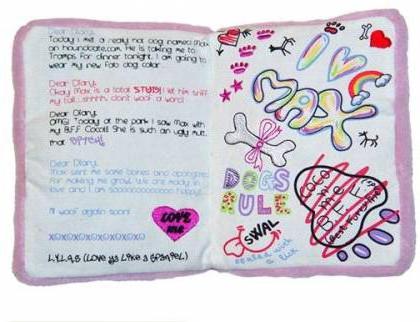 Dear Diary,
Today i met a really hot dog named Max
on hounddate.com. He is taking me to
Tramps for dinner tonight. I am going to
wear my new Fab dog collar
Dear Diary,
Okay Max is a total STUD! I let him sniff
my tail...shhhh, don't woof a word
Dear Diary,
OMG! Today at the park I saw Max with
my B.F.F Coco!!! She is such an ugly mutt.
that
Dear Diary,
Max sent me some bones and apologized
for making me growl. We are madly in
love and I am soooooooooooo happy!
I'll woof again soon!
xoxoxoxoxoxoxo
L.Y.L.A.S (Love ya Like a Spaniel)
LOVE
me
I
MAX
DOGS
RULE
SWAL
sealed with
a lick
COCO
and me
B.F.F
Best Furiends